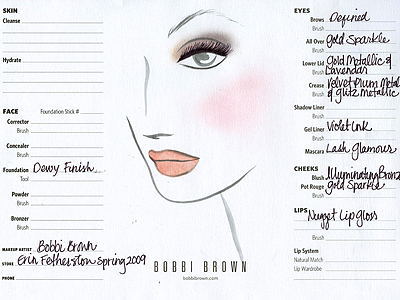 SKIN
Cleanse
Hydrate
FACE Foundation Stick #
Corrector
Brush
Concealer
Brush
Foundation Dewy Finish
Tool
Powder
Brush
Bronzer
Brush
MAKEUP ARTIST Bobbi Brown
STORE Erin Fetherston Spring 2009
PHONE
BOBBI BROWN
bobbibrown.com
EYES
Brows Defined
Brush
All Over gold Sparkle
Brush
Lower Lid Gold Metallic &
Brush Lavendar
Crease Velvet Plum Metal
Brush & glitz metallic
Shadow Liner
Brush
Gel Liner Violet Ink
Brush
Mascara Lash Glamour
CHEEKS
Blush Illuminating Bronz
Brush
Pot Rouge gold Sparkle
Brush
LIPS
Nugget Lip Gloss
Brush
Lip System
Natural Match
Lip Wardrobe